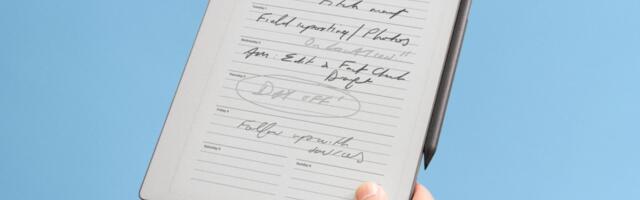 Pitch
Tuesday
Field reporting / Photos
On location!!
Wednesday
Am: Edit & Fact Check
Draft
Thursday
Day off!
Friday
Follow up with
sources
Saturday
Sunday